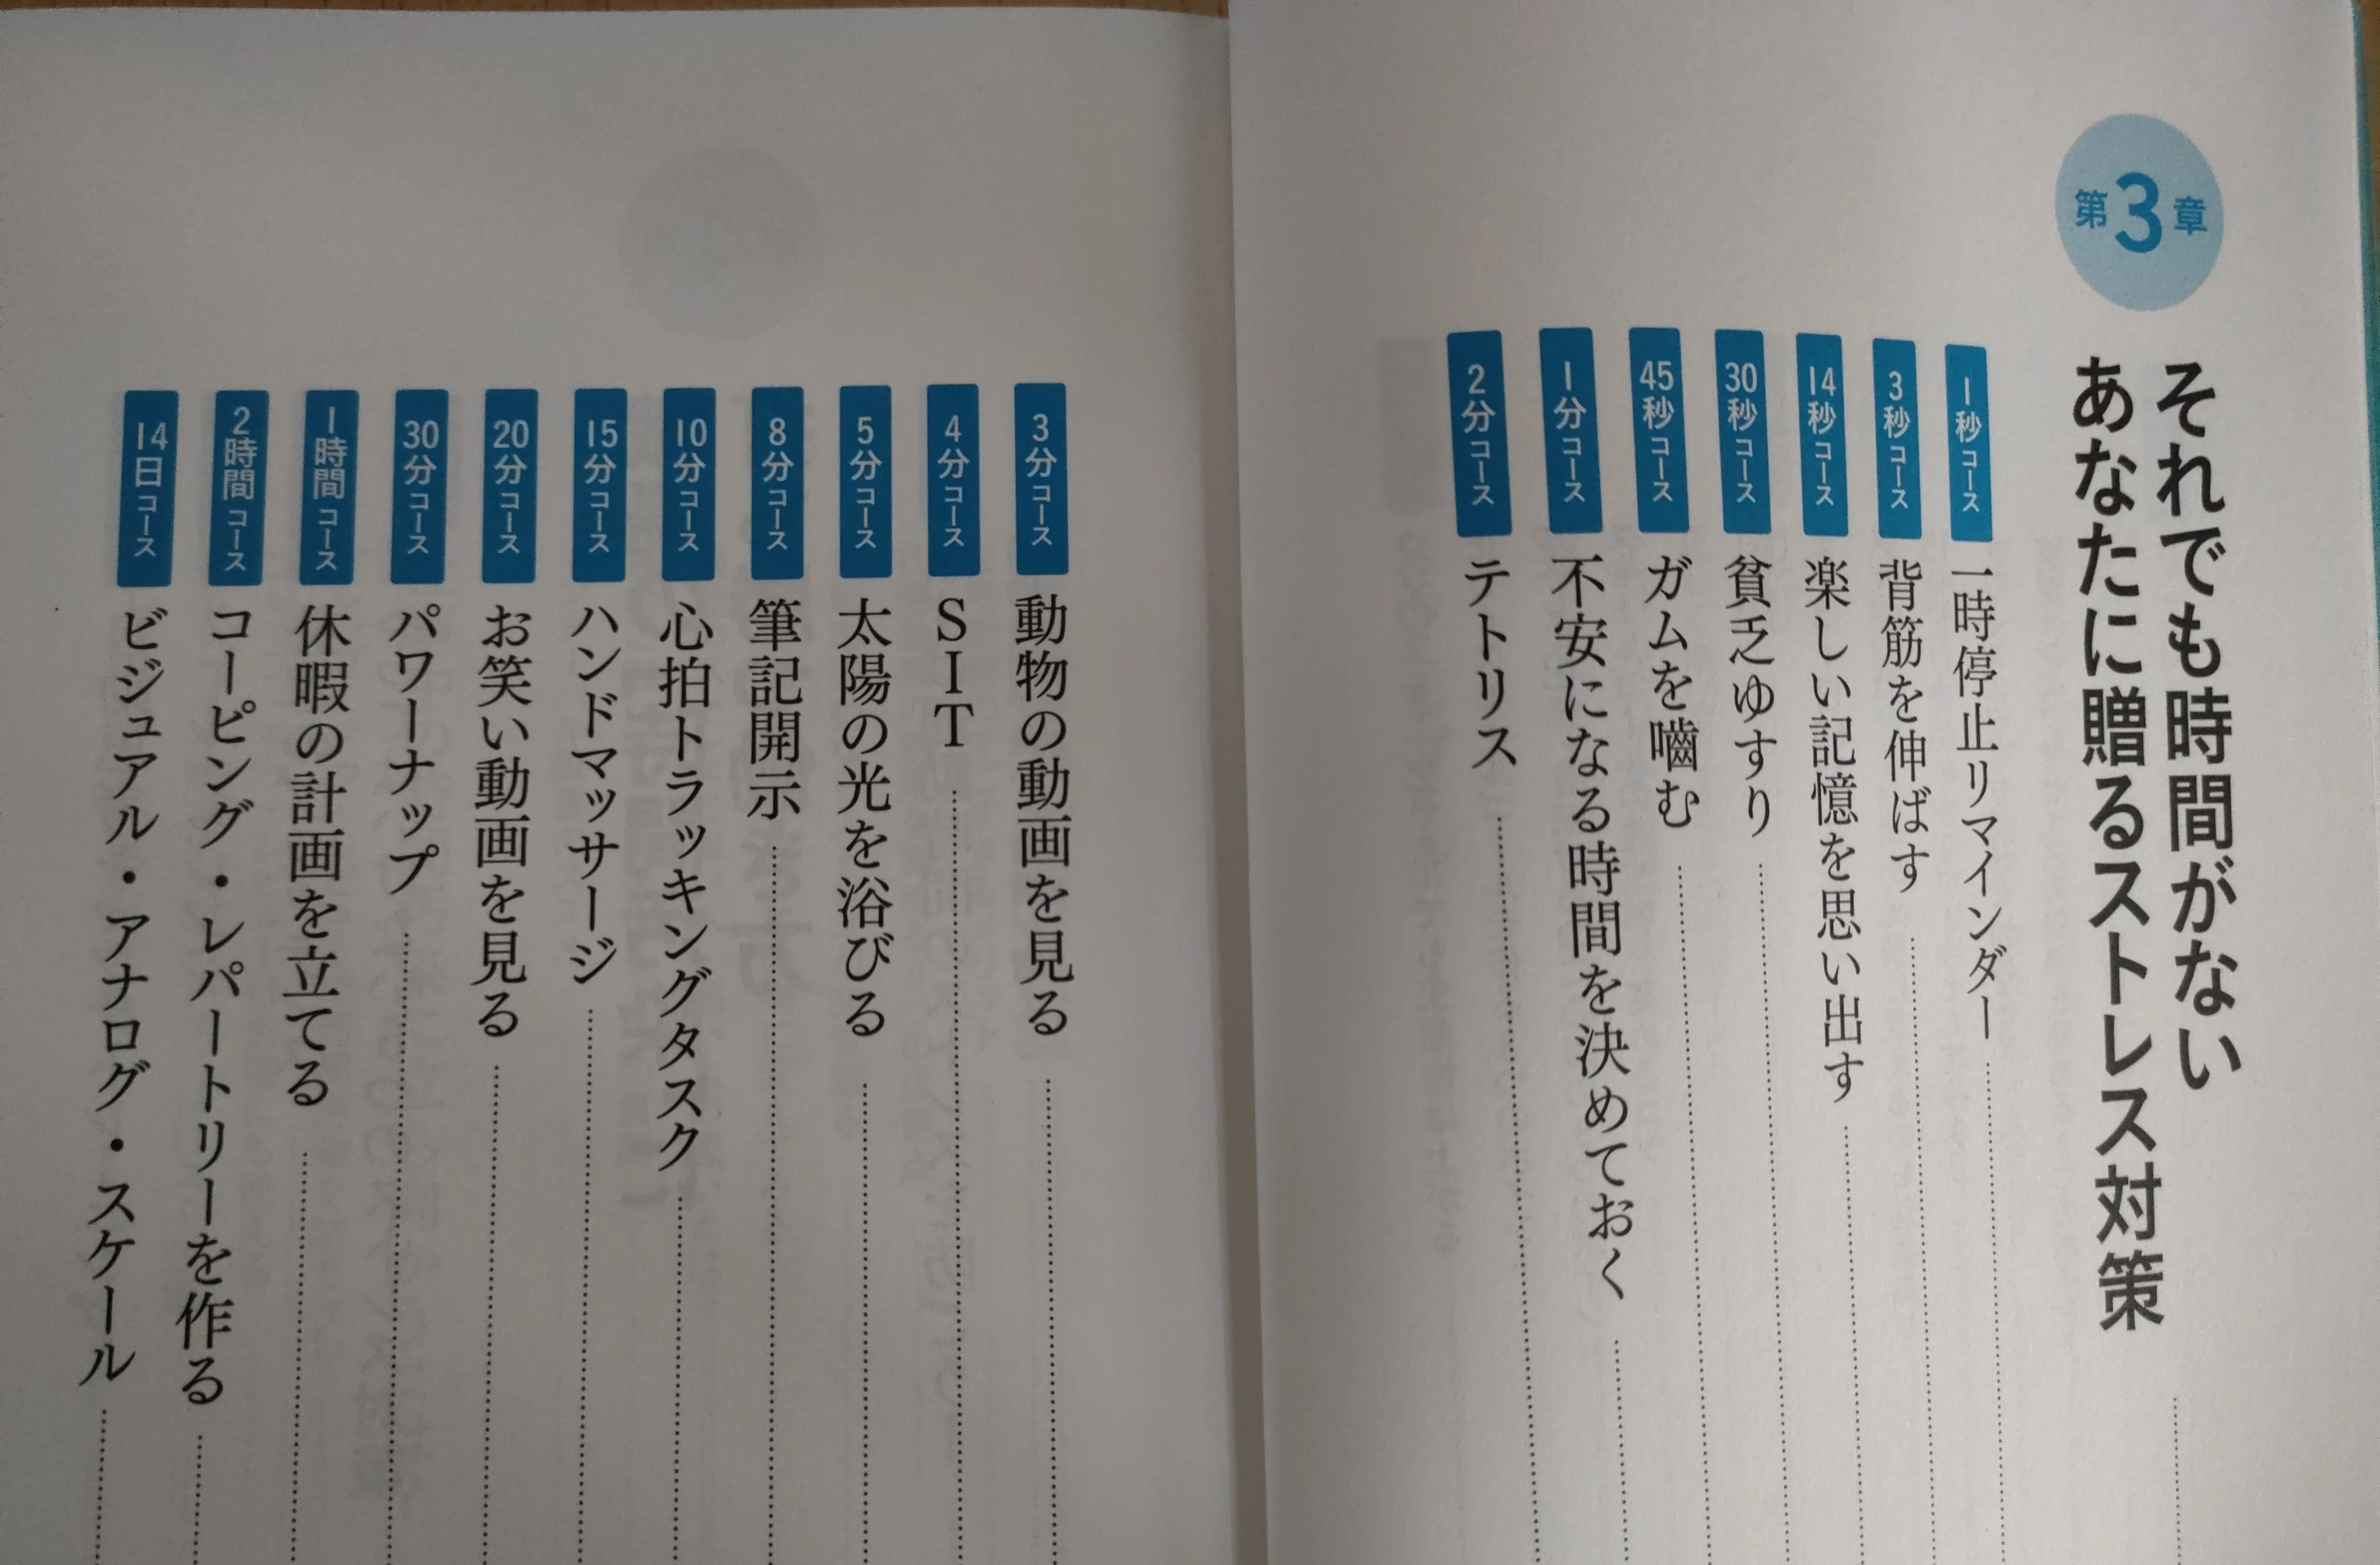 第3章
それでも時間がない
あなたに贈るストレス対策
1秒コース 一時停止リマインダー
3秒コース 背筋を伸ばす
14秒コース 楽しい記憶を思い出す
30秒コース 貧乏ゆすり
45秒コース ガムを嚙む
1分コース 不安になる時間を決めておく
2分コース テトリス
3分コース 動物の動画を見る
4分コース SIT
5分コース 太陽の光を浴びる
8分コース 筆記開示
10分コース 心拍トラッキングタスク
15分コース ハンドマッサージ
20分コース お笑い動画を見る
30分コース パワーナップ
1時間コース 休暇の計画を立てる
2時間コース コーピング・レパートリーを作る
14日コース ビジュアル・アナログ・スケール